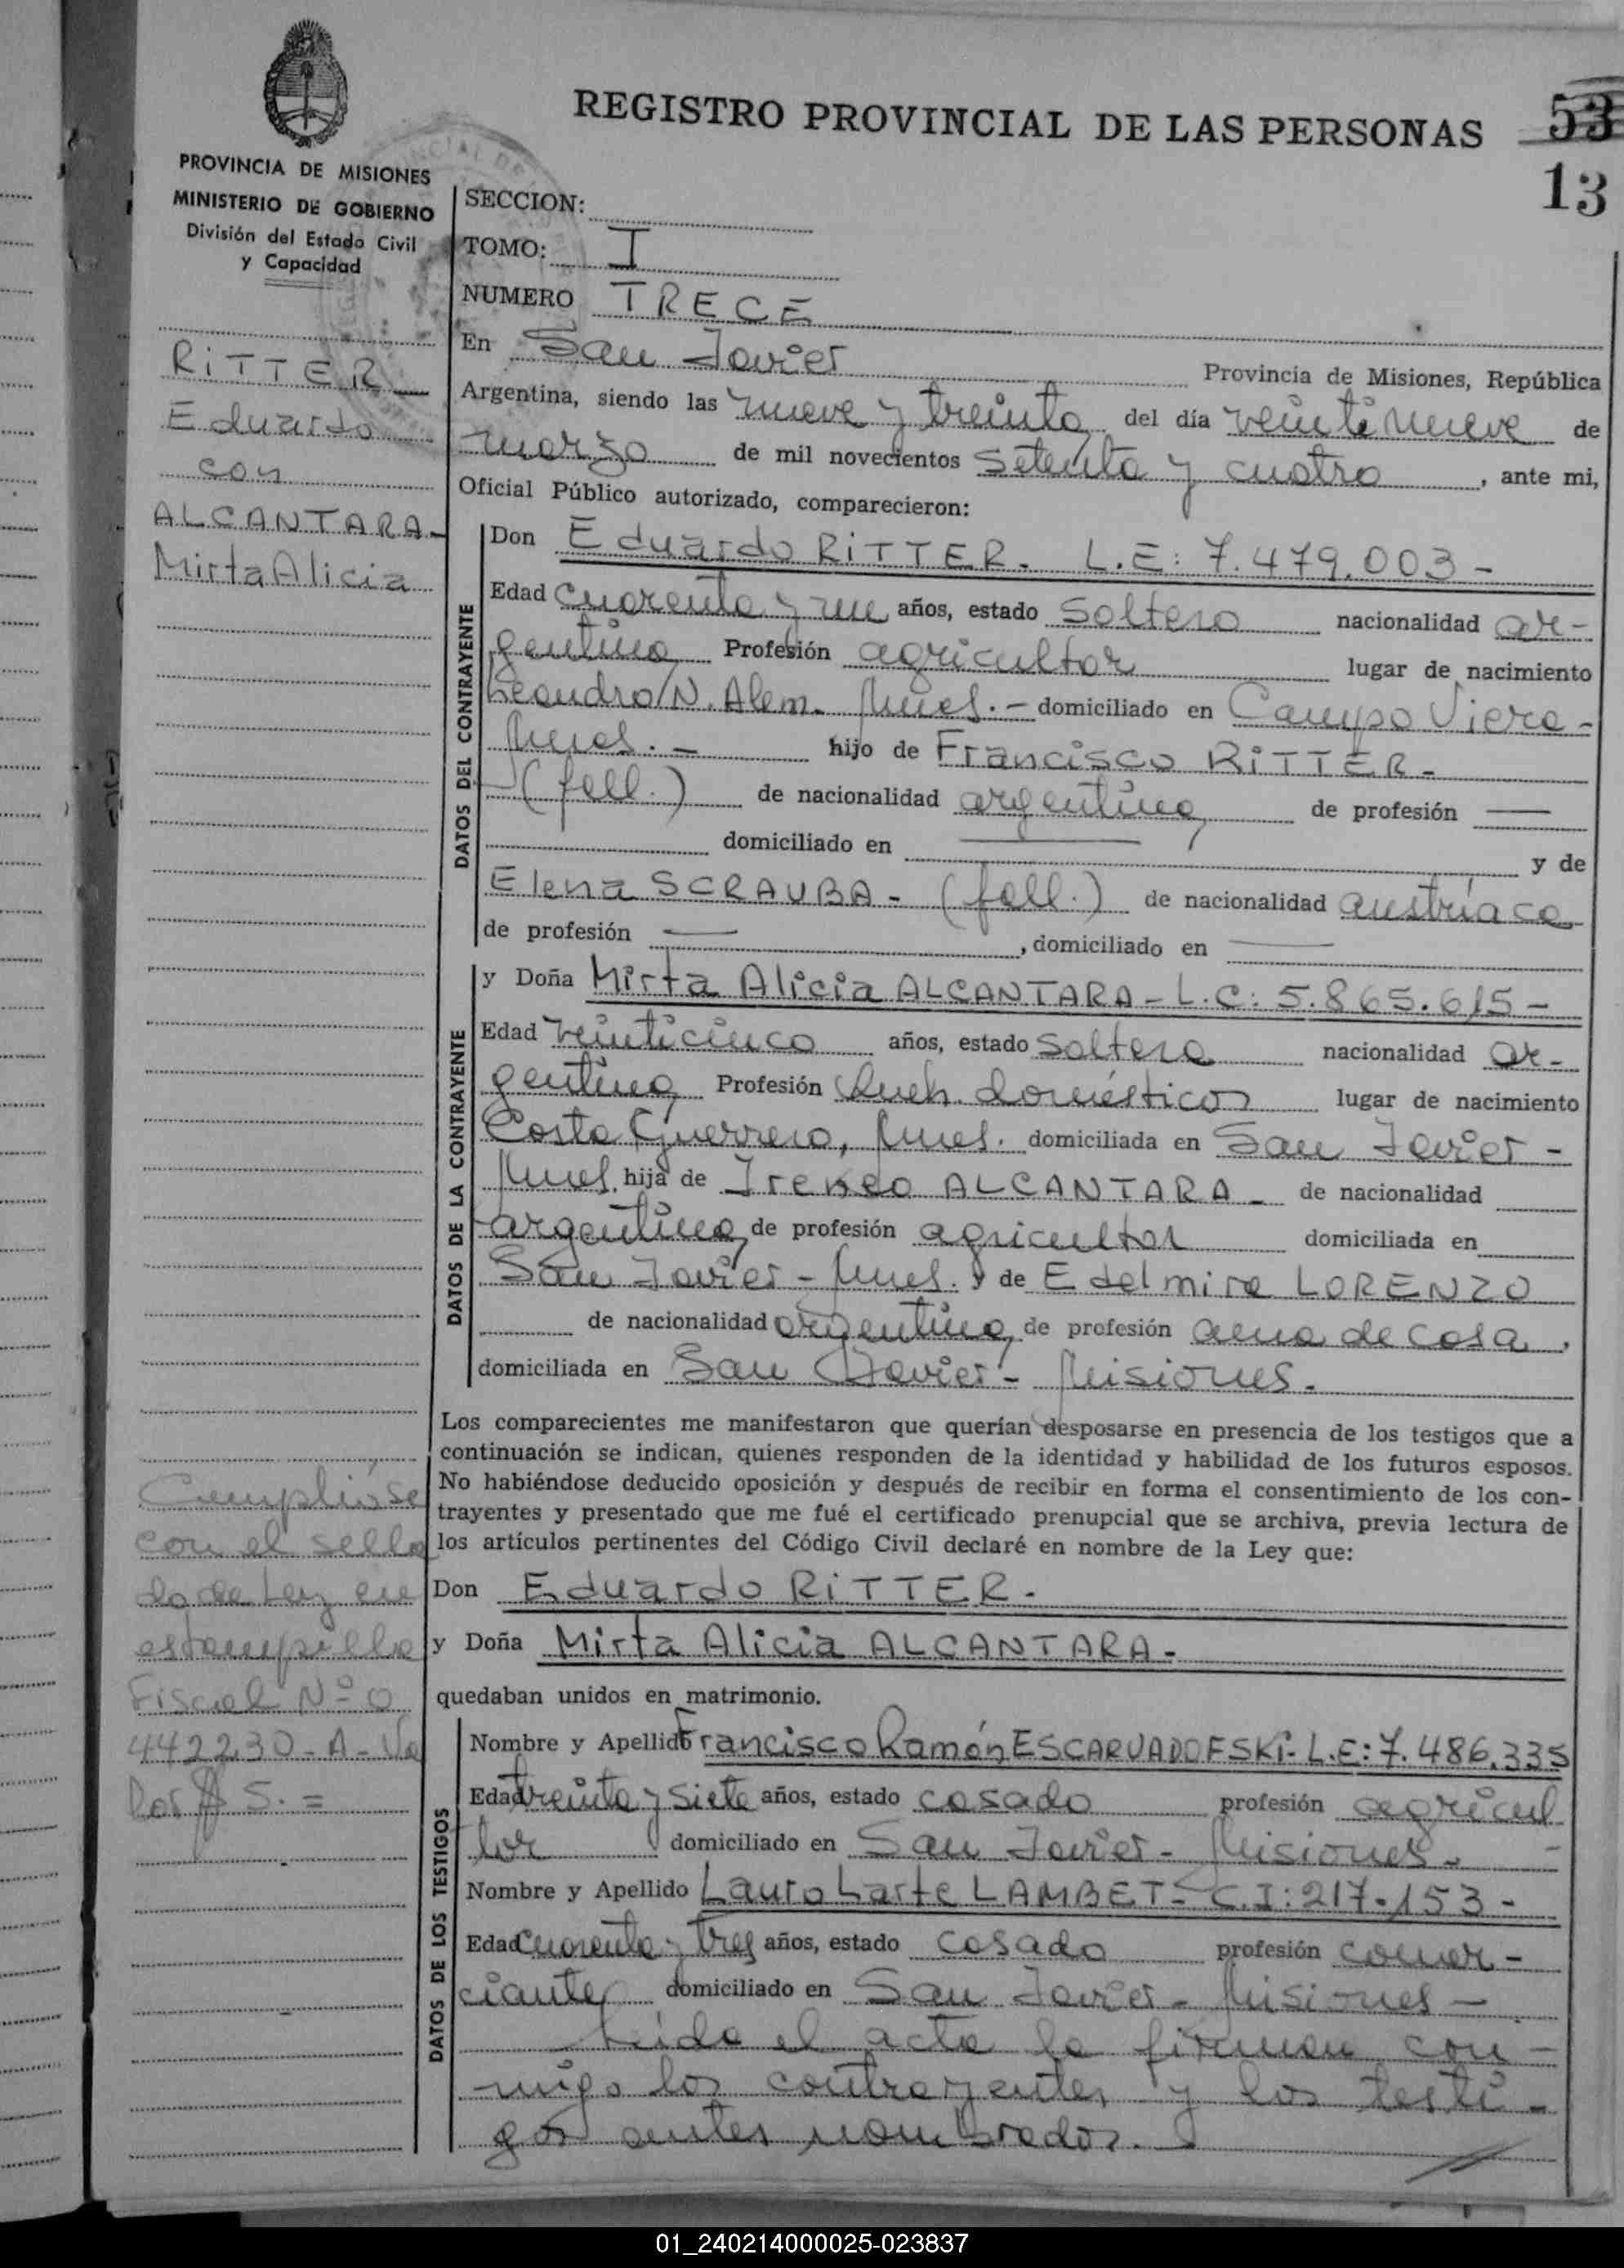 REGISTRO PROVINCIAL DE LAS PERSONAS
53
13
PROVINCIA DE MISIONES
MINISTERIO DE GOBIERNO
División del Estado Civil
y Capacidad
RiTTER
Eduardo
con
ALCANTARA-
Mirta Alicia
SECCION:
TOMO: I
NUMERO TRECE
En San Javier Provincia de Misiones, República
Argentina, siendo las nueve y treinta del día veintinueve de
marzo de mil novecientos setenta y cuatro, ante mi,
Oficial Público autorizado, comparecieron:
DATOS DEL CONTRAYENTE
Don Eduardo RiTTER. L.E: 7.479.003-
Edad cuarenta y un años, estado soltero nacionalidad ar-
gentina Profesión agricultor lugar de nacimiento
Leandro N. Alem. Mnes.- domiciliado en Campo Viera-
Mnes.- hijo de Francisco RiTTER-
(fall.) de nacionalidad argentina de profesión —
domiciliado en — y de
Elena SCRAUBA- (fall.) de nacionalidad austríaca
de profesión —, domiciliado en —
DATOS DE LA CONTRAYENTE
y Doña Mirta Alicia ALCANTARA-L.C: 5.865.615-
Edad veinticinco años, estado soltera nacionalidad ar-
gentina Profesión Queh. domésticos lugar de nacimiento
Costa Guerrero, Mnes. domiciliada en San Javier-
Mnes. hija de Ireneo ALCANTARA- de nacionalidad
argentina de profesión agricultor domiciliada en
San Javier-Mnes. y de Edelmira LORENZO
de nacionalidad argentina de profesión ama de casa,
domiciliada en San Javier- Misiones.
Los comparecientes me manifestaron que querían desposarse en presencia de los testigos que a
continuación se indican, quienes responden de la identidad y habilidad de los futuros esposos.
No habiéndose deducido oposición y después de recibir en forma el consentimiento de los con-
trayentes y presentado que me fué el certificado prenupcial que se archiva, previa lectura de
los artículos pertinentes del Código Civil declaré en nombre de la Ley que:
Don Eduardo RiTTER.
y Doña Mirta Alicia ALCANTARA-
quedaban unidos en matrimonio.
Cumplióse
con el sella
do de Ley en
estampilla
Fiscal Nº 0
442230-A-Va
lor $ 5.=
DATOS DE LOS TESTIGOS
Nombre y Apellido Francisco Ramón ESCARVADOFSKi-L.E: 7.486.335
Edad treinta y siete años, estado casado profesión agricul
tor domiciliado en San Javier- Misiones-
Nombre y Apellido Lauro Larte LAMBET-C.I: 217.153-
Edad cuarenta y tres años, estado casado profesión comer-
ciante domiciliado en San Javier- Misiones-
Leída el acta la firman con-
migo los contrayentes y los testi-
gos antes nombrados.
01_240214000025-023837